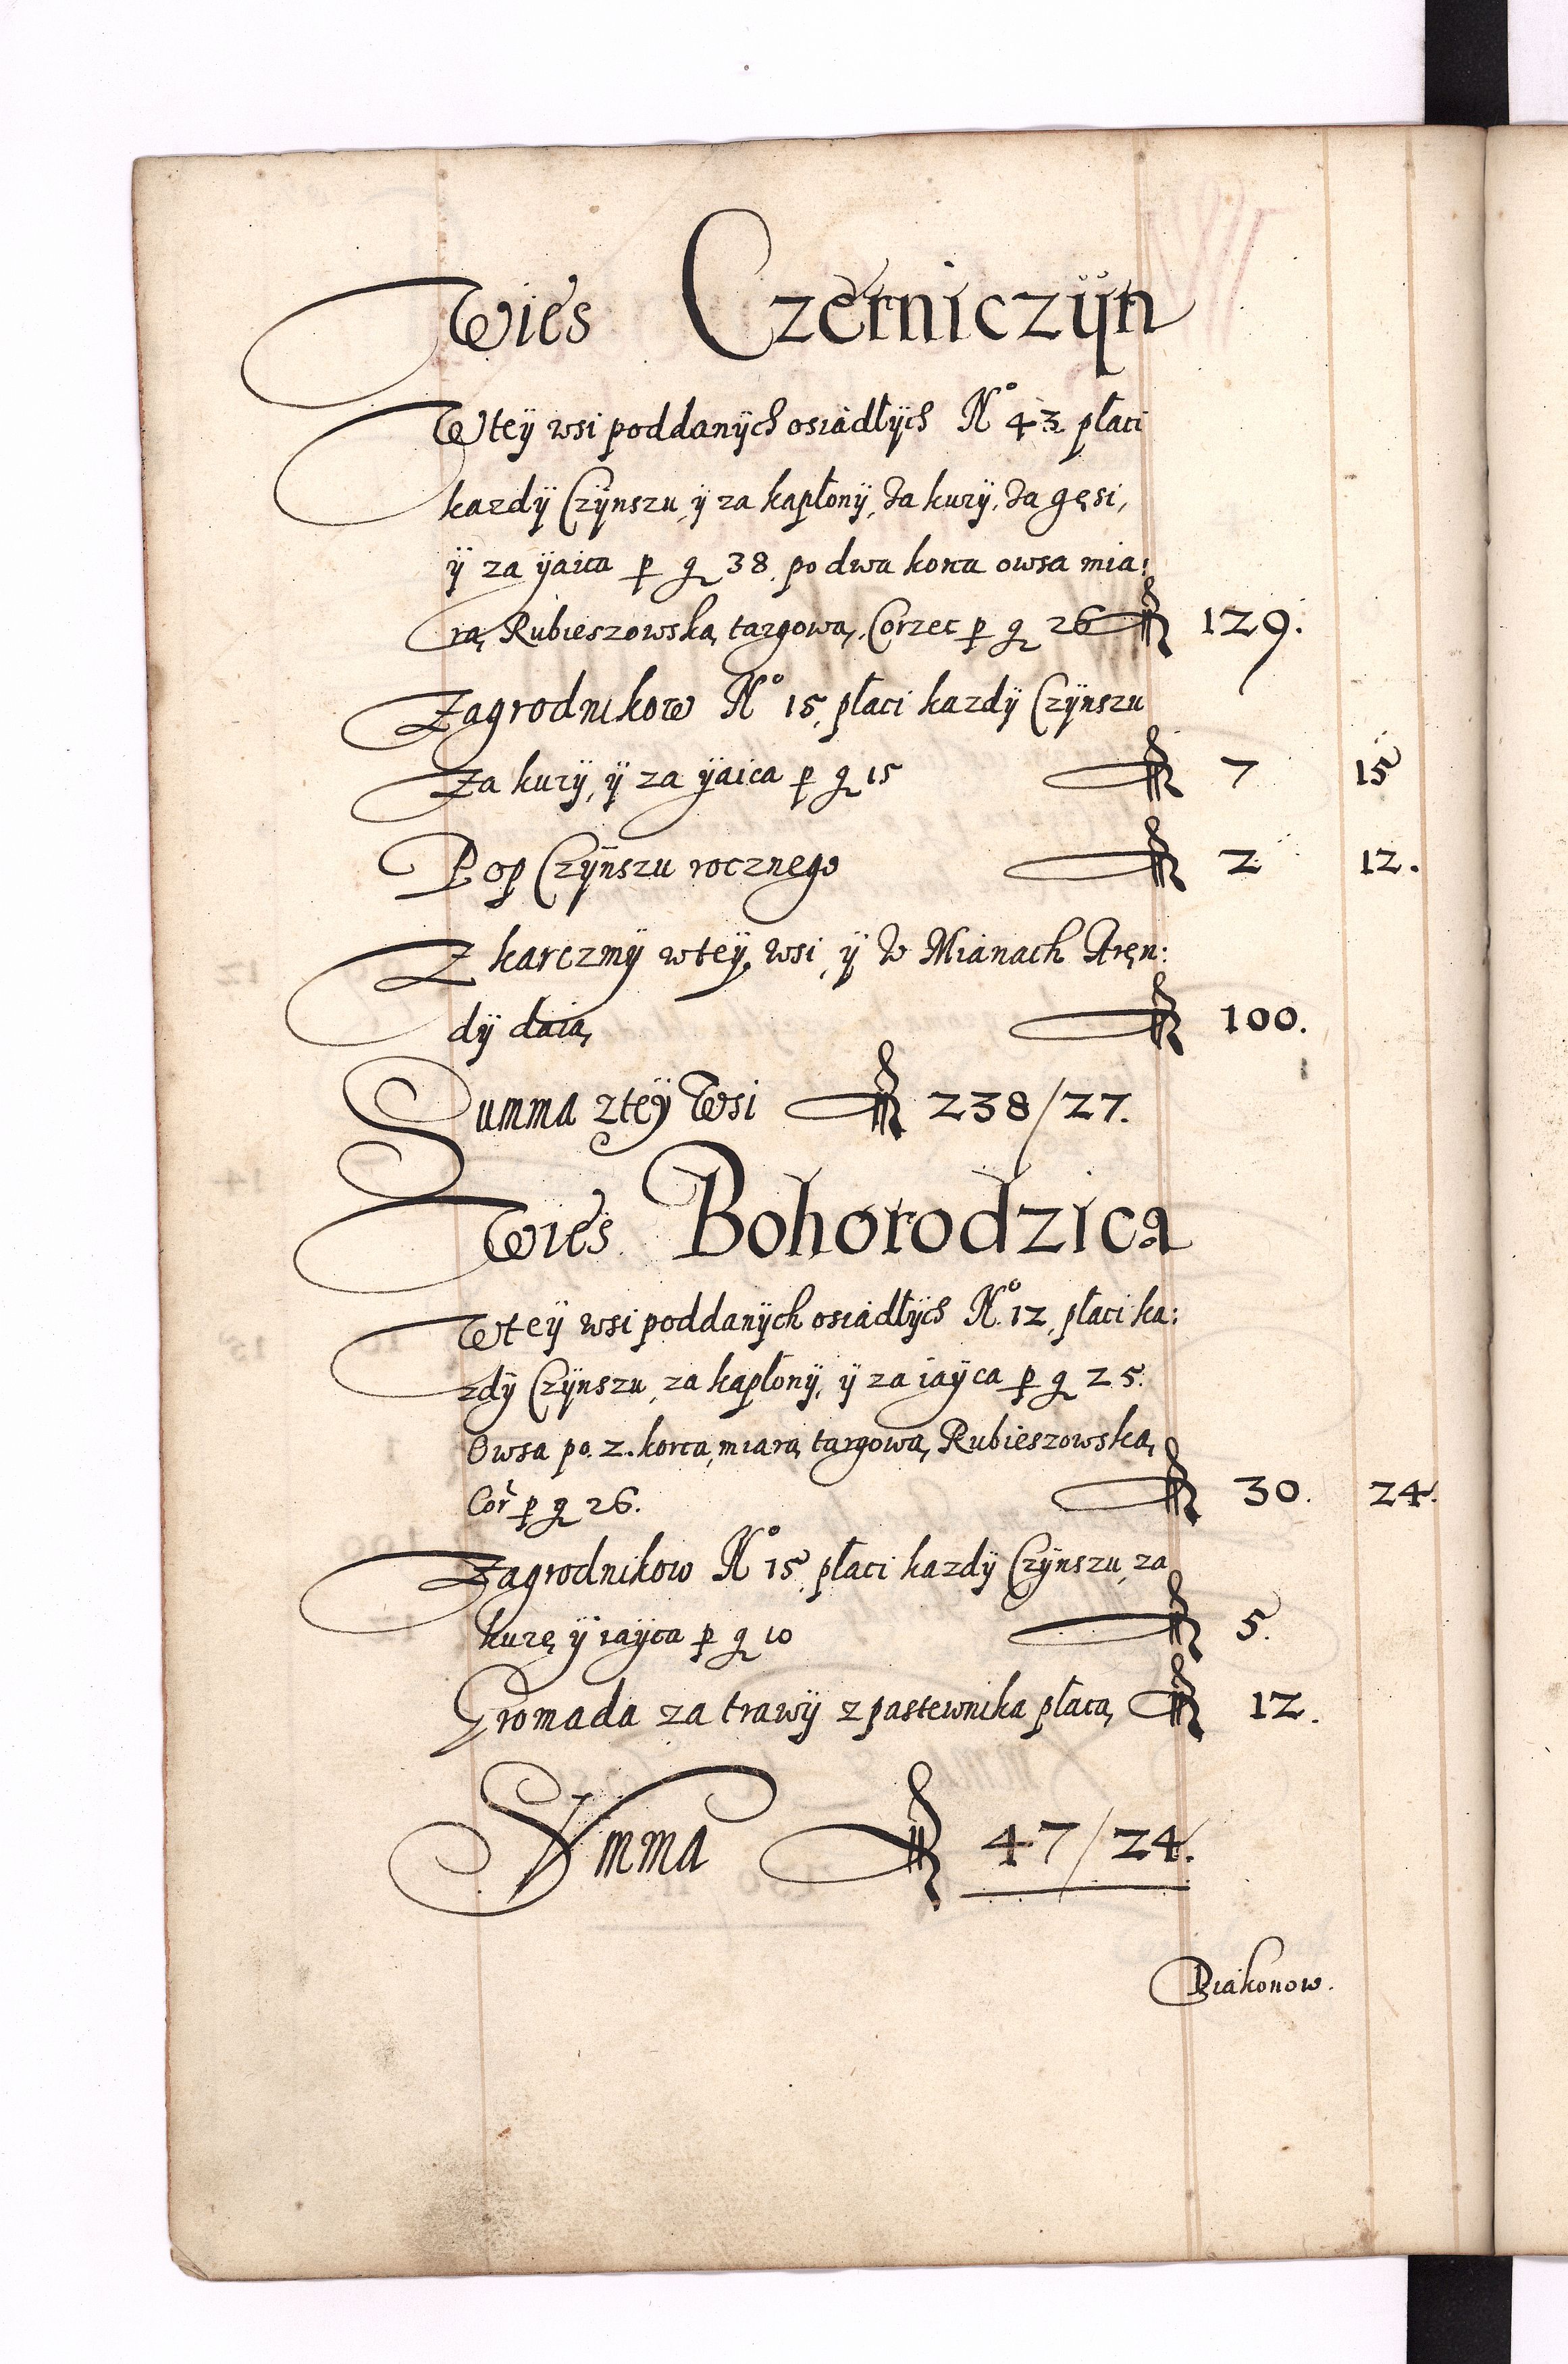 Wies Czerniczÿn
W teÿ wsi poddanÿch osiadłÿch No 43 płaci
kazdÿ Czÿnszu, ÿ za kapłonÿ, Za kurÿ, Za gęsi,
ÿ za ÿaica p g 38. po dwa korca owsa mia:
rą Rubieszowską targową, Corzec p g 26 fl 129.
Zagrodnikow No 15, płaci kazdÿ Czÿnszu
Za kurÿ, ÿ za ÿaica p g 15 fl 7 15
Pop Czÿnszu rocznego fl 2 12.
Z karczmÿ w teÿ wsi, ÿ W Mianach Aręn:
dÿ daią fl 100.
Summa z teÿ Wsi fl 238/27.
Wies Bohorodzica
W teÿ wsi poddanÿch osiadłÿch No 12, płaci ka:
zdÿ Czÿnszu, za kapłonÿ, ÿ za iaÿca p g 25.
Owsa po. 2. korca, miarą targową Rubieszowską
Cor p g 26. fl 30. 24.
Zagrodnikow No 15, płaci kazdÿ Czÿnszu, za
kurę ÿ iaÿca p g 10 fl 5.
Gromada za trawÿ z pastewnika płacą fl 12.
Summa fl 47/24.
Diakonow.